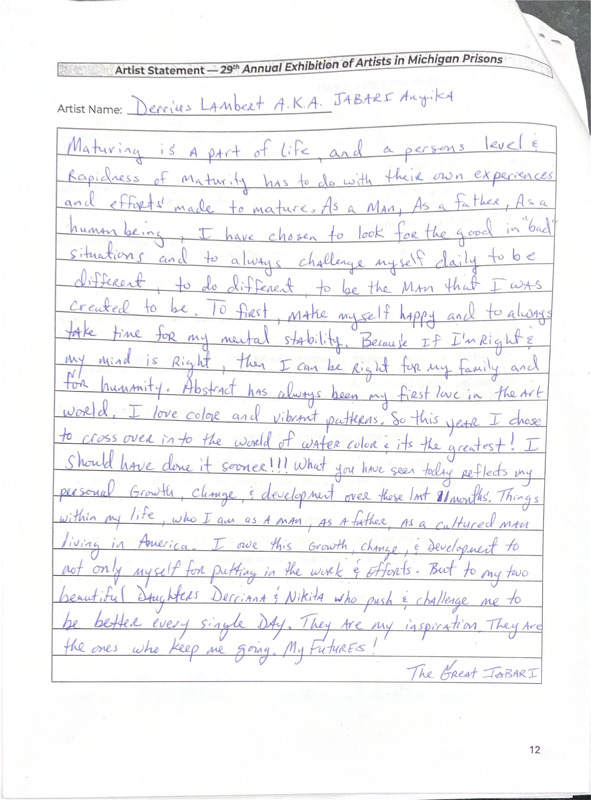 Artist Statement — 29th Annual Exhibition of Artists in Michigan Prisons
Artist Name: Derrius Lambert A.K.A. JABARI Anyika
Maturing is a part of life, and a persons level &
Rapidness of maturity has to do with their own experiences
and efforts made to mature. As a Man, As a father, As a
human being, I have chosen to look for the good in "bad"
situations and to always challenge myself daily to be
different, to do different, to be the Man that I was
created to be. To first, make myself happy and to always
take time for my mental stability. Because If I'm Right &
my mind is Right, then I can be Right for my family and
for humanity. Abstract has always been my first love in the Art
world. I love color and vibrant patterns. So this year I chose
to cross over in to the world of water color & its the greatest! I
should have done it sooner!!! What you have seen today reflects my
personal Growth, Change, & development over these last 11 months. Things
within my life, who I am as A man, as A father, as a cultured man
living in America. I owe this Growth, change, & Development to
not only myself for putting in the work & Efforts. But to my two
beautiful Daughters Derriana & Nikita who push & challenge me to
be better every single DAY. They Are my inspiration They Are
the ones who keep me going. My FUTURES!
The Great JABARI
12